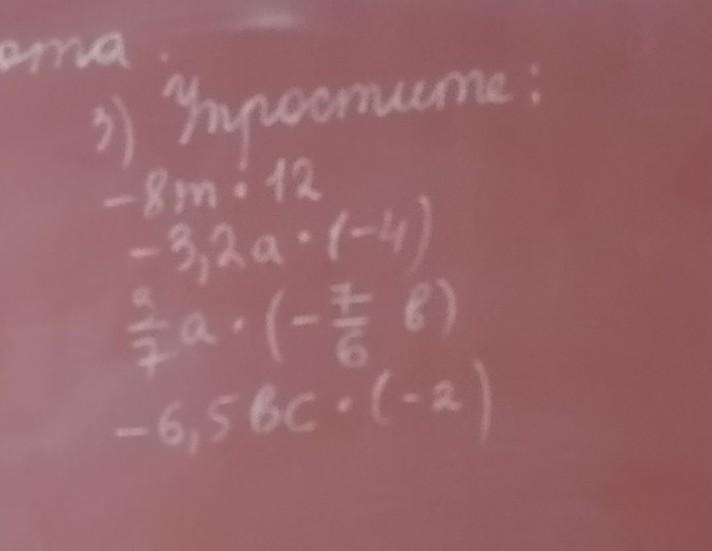 ота.
3) Упростите:
-8m · 12
-3,2a · (-4)
\frac{9}{7}a · (-\frac{7}{6} в)
-6,5вc · (-2)